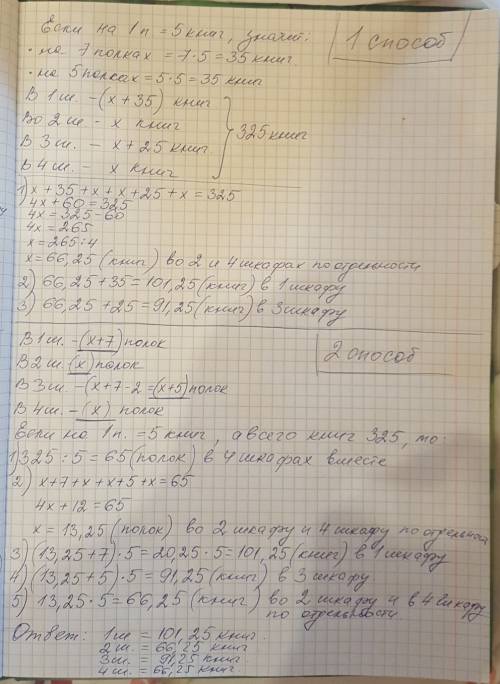 Если на 1 п. = 5 книг, значит:
1 способ
• на 7 полках = 7·5 = 35 книг.
• на 5 полках = 5·5 = 35 книг
В 1 ш. - (х + 35) книг
Во 2 ш. - х книг
В 3 ш. - х + 25 книг
В 4 ш. - х книг
325 книг
1) х + 35 + х + х + 25 + х = 325
4х + 60 = 325
4х = 325 - 60
4х = 265
х = 265 : 4
х = 66,25 (книг) во 2 и 4 шкафах по отдельности
2) 66,25 + 35 = 101,25 (книг) в 1 шкафу
3) 66,25 + 25 = 91,25 (книг) в 3 шкафу
2 способ
В 1 ш. - (х+7) полок
В 2 ш. (х) полок
В 3 ш. - (х + 7 - 2 = (х+5) полок
В 4 ш. - (х) полок
Если на 1 п. = 5 книг, а всего книг 325, то:
1) 325 : 5 = 65 (полок) в 4 шкафах вместе
2) х + 7 + х + х + 5 + х = 65
4х + 12 = 65
х = 13,25 (полок) во 2 шкафу и 4 шкафу по отдельности
3) (13,25 + 7) · 5 = 20,25 · 5 = 101,25 (книг) в 1 шкафу
4) (13,25 + 5) · 5 = 91,25 (книг) в 3 шкафу
5) 13,25 · 5 = 66,25 (книг) во 2 шкафу и в 4 шкафу
по отдельности
Ответ: 1ш = 101,25 книг.
2ш. = 66,25 книг
3ш. = 91,25 книг
4ш. = 66,25 книг